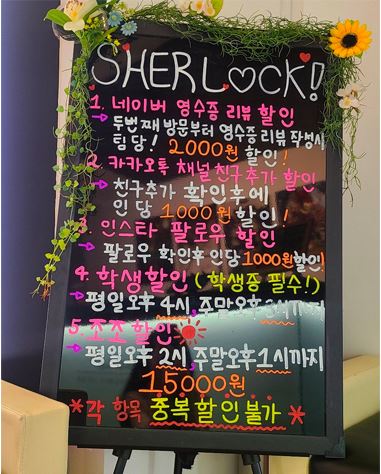 SHERLOCK!
1. 네이버 영수증 리뷰 할인
→ 두번째 방문부터 영수증 리뷰 작성시
팀당! 2000원 할인!
2. 카카오톡 채널 친구추가 할인
→ 친구추가 확인후에
인당 1000원 할인!
3. 인스타 팔로우 할인
→ 팔로우 확인후 인당 1000원 할인!
4. 학생할인 (학생증 필수!)
→ 평일오후 4시, 주말오후 3시까지
5. 조조할인
→ 평일오후 2시, 주말오후 1시까지
15000원
*각 항목 중복할인불가*